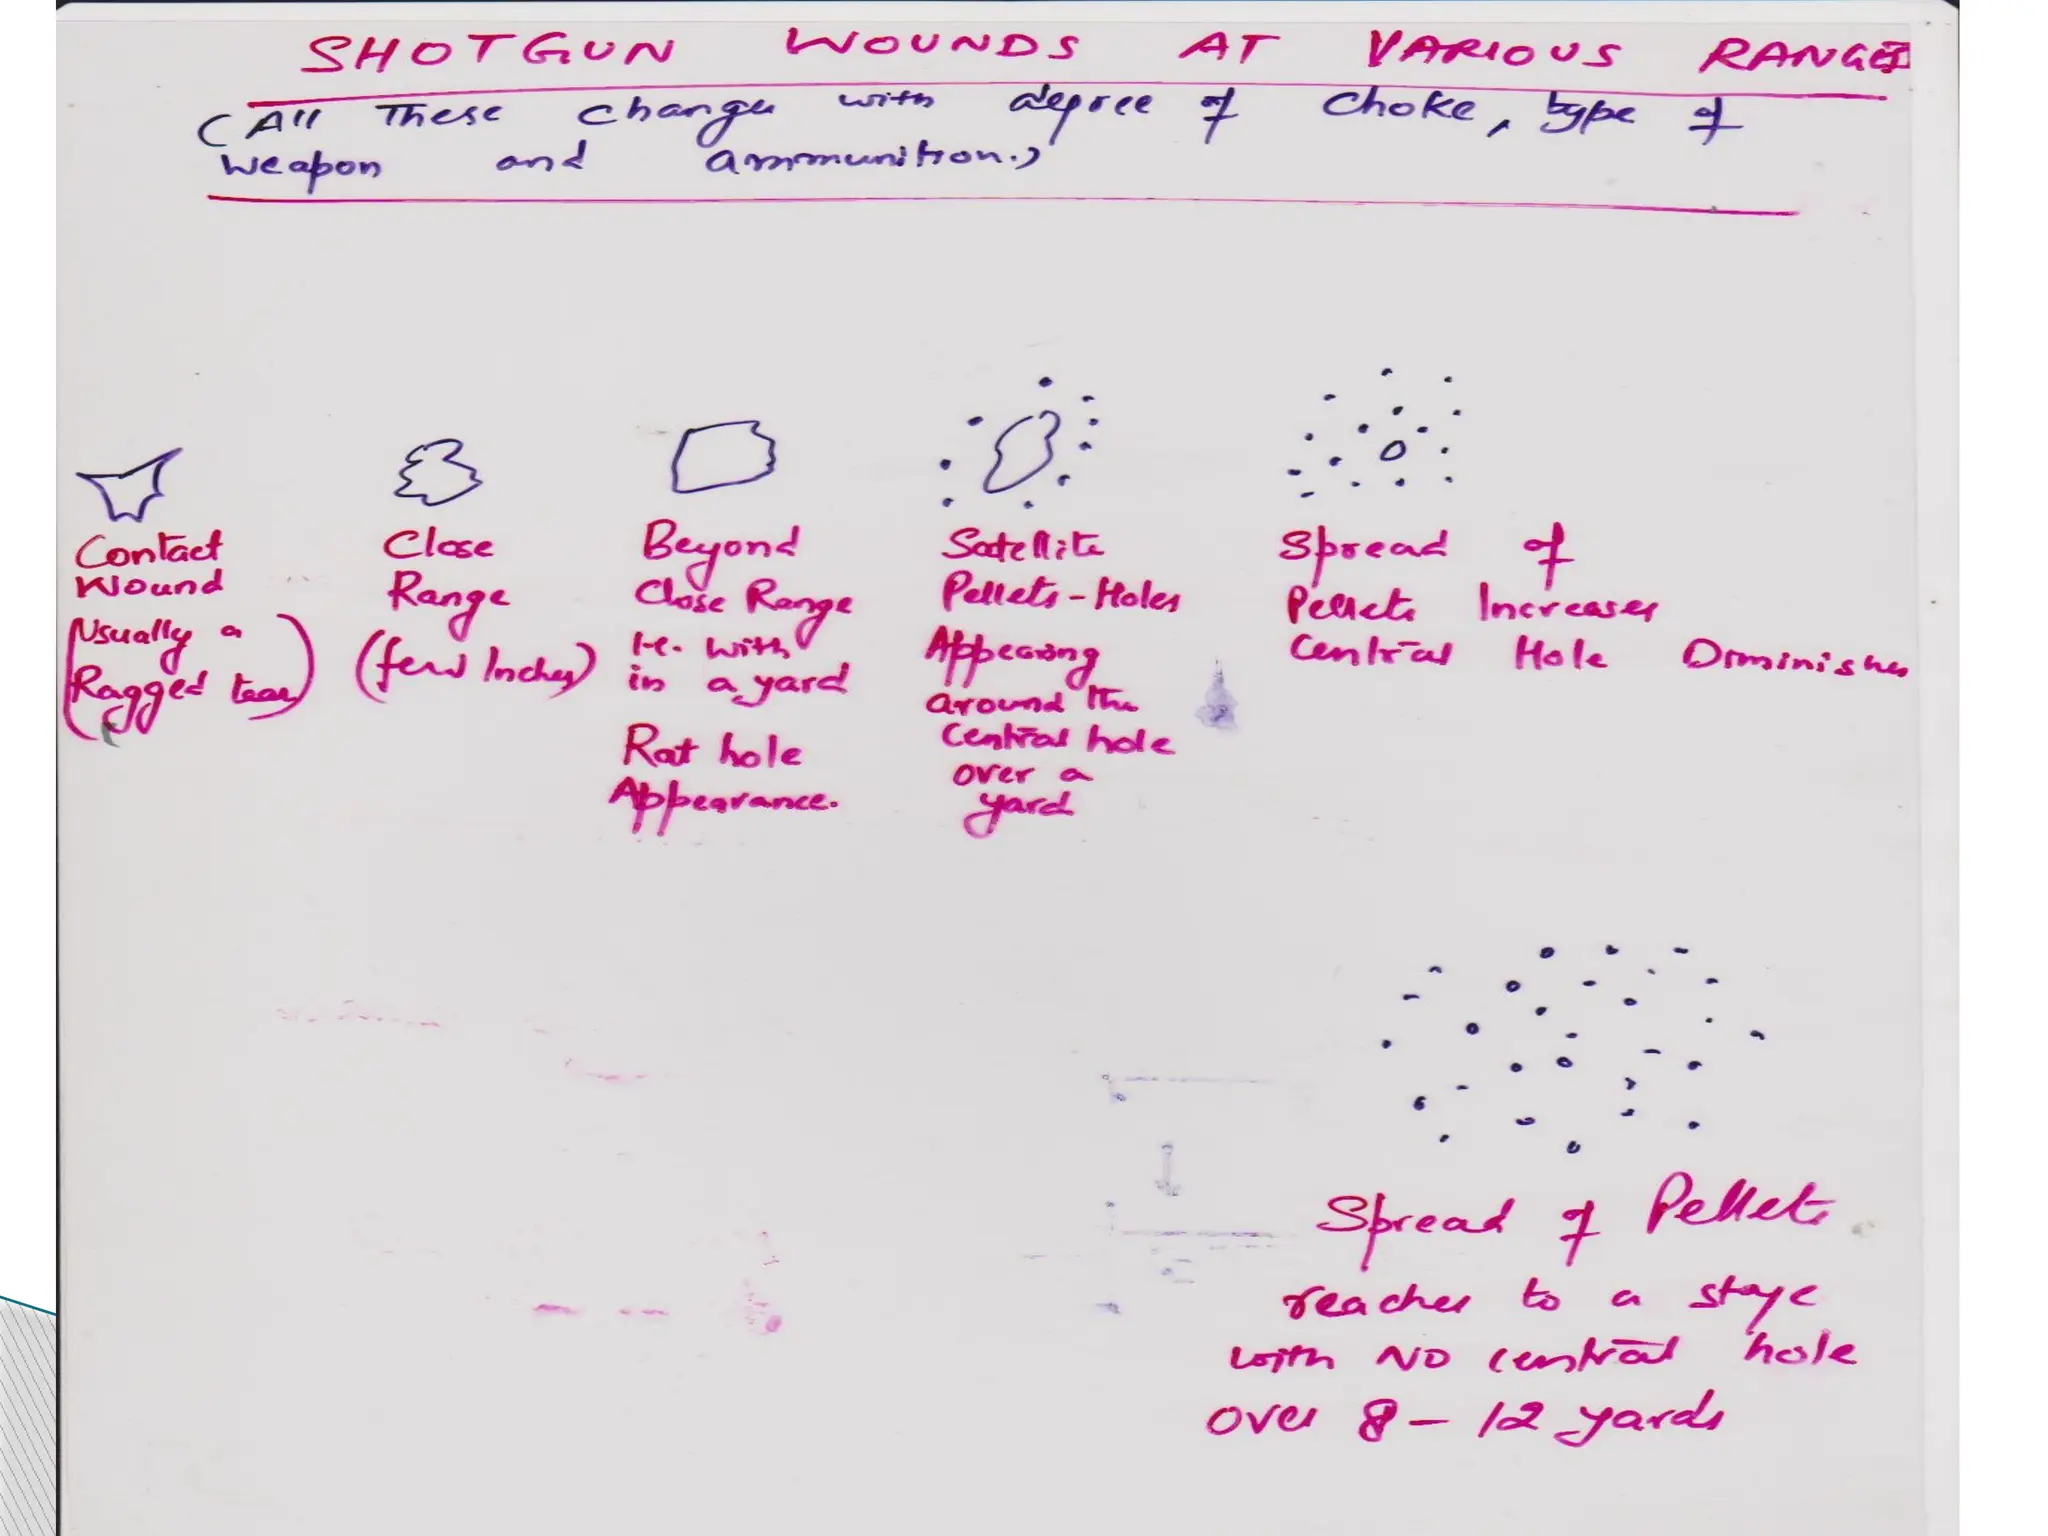 SHOTGUN WOUNDS AT VARIOUS RANGES
(All These changes with degree of choke, type of
weapon and ammunition.)
Contact
Wound
(Usually a
Ragged tear)
Close
Range
(few Inches)
Beyond
Close Range
i.e. with
in a yard
Rat hole
Appearance.
Satellite
Pellets-Holes
Appearing
around the
Central hole
over a
yard
Spread of
Pellets Increases
Central Hole Diminishes
Spread of Pellets
reaches to a stage
with NO central hole
over 8-12 yards